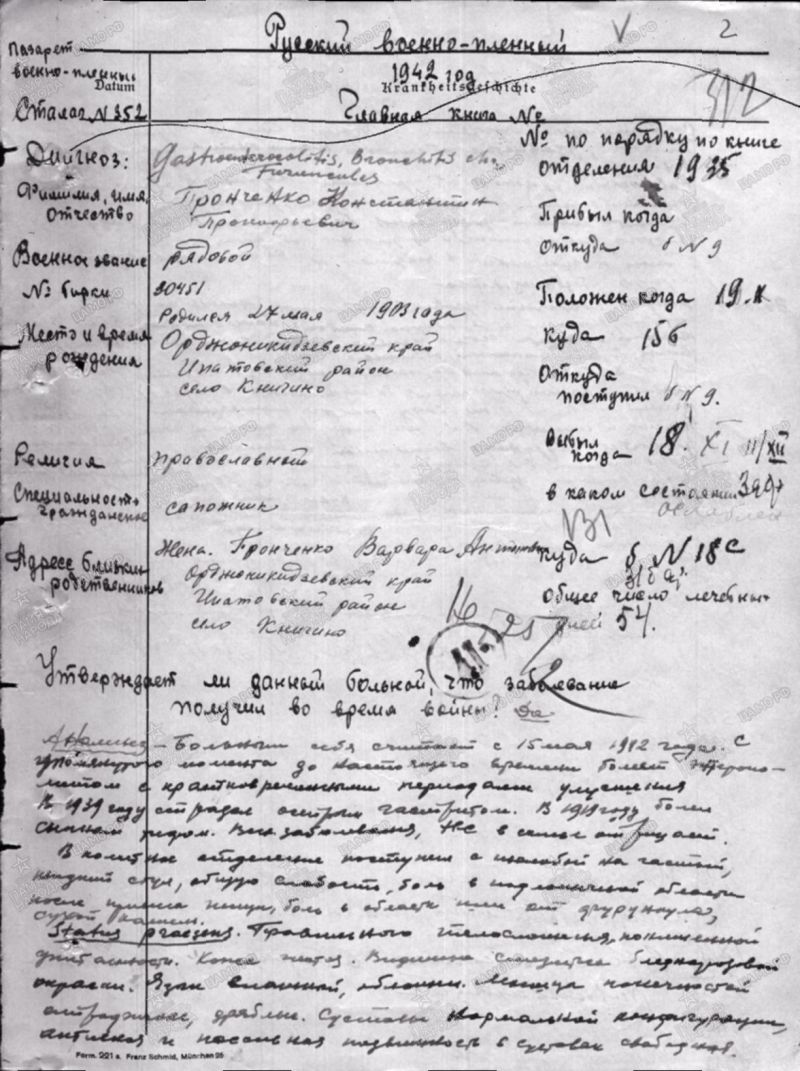 Русский военно-пленный
V 2
Лазарет
военно-пленных
Datum
1942 год
Krankheitsgeschichte
312
Сталаг N 352
Главная книга №
№ по порядку по книге
Диагноз:
Gastroenterocolitis, Bronchitis chr.
Furunculus
отделения 1935
Фамилия, имя,
отчество
Гронченко Константин
Прокофьевич
Прибыл когда
Откуда б N 9
Военное звание
рядовой
№ бирки
30451
Положен когда 19.
Место и время
рождения
Родился 27 мая 1903 года
Орджоникидзевский край
Ипатовский район
село Кничино
Куда 15б
Откуда
поступил б N 9.
Выбыл
когда 18. XI 11/XII
Религия
православный
Специальность
гражданская
сапожник
в каком состоянии
131
Адресс ближних
родственников
Жена. Гронченко Варвара
Орджоникидзевский край
Ипатовский район
село Кничино
Куда б N 18 с
Общее число лечебных
дней 54.
16
25
Утверждает ли данный больной, что заболевание
получил во время войны? Да
– Больным себя считает с 15 мая 1942 года. С
упомянутого момента до настоящего времени болеет
с кратковременными периодами улучшения
В 1939 году страдал острым гастритом. В 1919 году болел
сыпным тифом. Вен. заболевания, в семье отрицает.
В отделение поступил с жалобой на частый,
жидкий стул, общую слабость, боль в области
после приема пищи, боль в области шеи от фурункула,
сухой кашель.
Status praesens. Правильного телосложения, пониженной
упитанности. Кожа чиста. Видимые слизистые бледнорозовой
окраски. Язык влажный, обложен. Мышцы конечностей
дряблые. Суставы нормальной конфигурации,
активная и пассивная подвижность в суставах свободная.
Form. 221 a. Franz Schmid, München 25